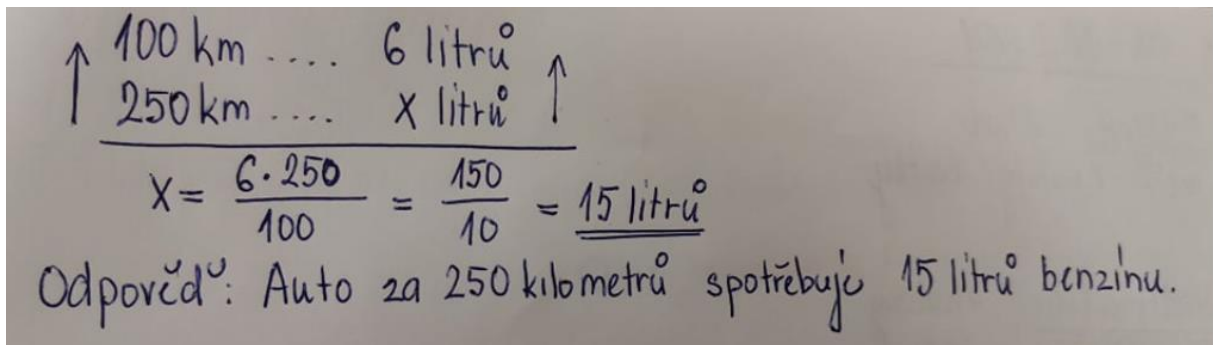 100 km .... 6 litrů
250 km .... x litrů
X = 6·250/100 = 150/10 = 15 litrů
Odpověď: Auto za 250 kilometrů spotřebuje 15 litrů benzínu.